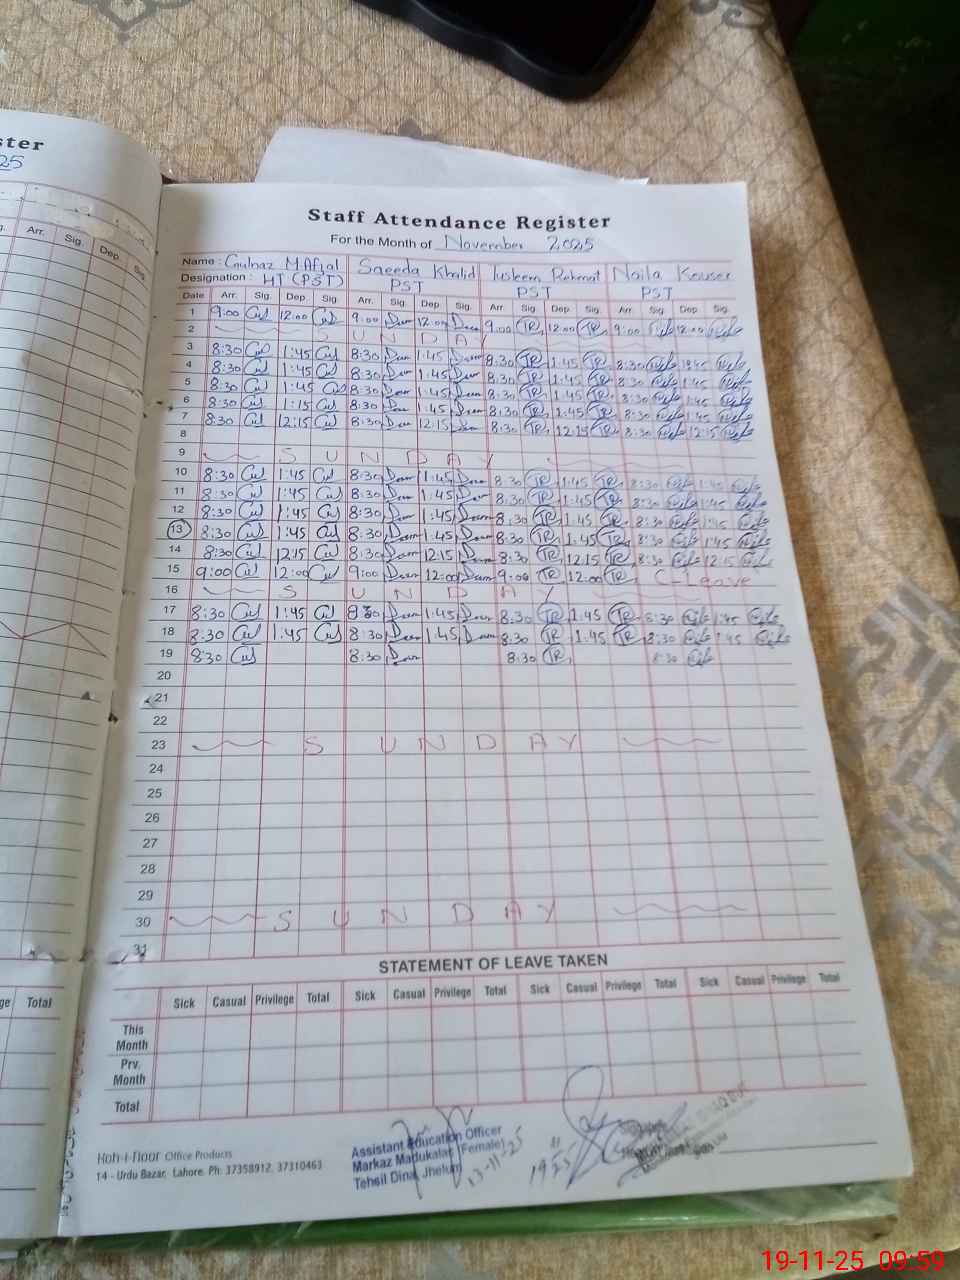 ster
25
Arr. Sig. Dep. Sig.
Staff Attendance Register
For the Month of November 2025
Name : Gulnaz M Afzal Saeeda Khalid Tusleem Rahmat Naila Kouser
Designation : HT (PST) PST PST PST
Date Arr. Sig. Dep. Sig. Arr. Sig. Dep Sig. Arr. Sig. Dep. Sig. Arr. Sig. Dep Sig.
1 9:00 12:00 9:00 12:00 9:00 TR 12:00 TR 9:00 12:00
2 S U N D A Y
3 8:30 1:45 8:30 1:45 8:30 TR 1:45 TR 8:30 1:45
4 8:30 1:45 8:30 1:45 8:30 TR 1:45 TR 8:30 1:45
5 8:30 1:45 8:30 1:45 8:30 TR 1:45 TR 8:30 1:45
6 8:30 1:15 8:30 1:45 8:30 TR 1:45 TR 8:30 1:45
7 8:30 12:15 8:30 12:15 8:30 TR 12:15 TR 8:30 12:15
8
9 S U N D A Y
10 8:30 1:45 8:30 1:45 8:30 TR 1:45 TR 8:30 1:45
11 8:30 1:45 8:30 1:45 8:30 TR 1:45 TR 8:30 1:45
12 8:30 1:45 8:30 1:45 8:30 TR 1:45 TR 8:30 1:45
13 8:30 1:45 8:30 1:45 8:30 TR 1:45 TR 8:30 1:45
14 8:30 12:15 8:30 12:15 8:30 TR 12:15 TR 8:30 12:15
15 9:00 12:00 9:00 12:00 9:00 TR 12:00 TR C-Leave
16 S U N D A Y
17 8:30 1:45 8:30 1:45 8:30 TR 1:45 TR 8:30 1:45
18 8:30 1:45 8:30 1:45 8:30 TR 1:45 TR 8:30 1:45
19 8:30 8:30 8:30 TR 8:30
20
21
22
23 S U N D A Y
24
25
26
27
28
29
30 S U N D A Y
31
STATEMENT OF LEAVE TAKEN
ge Total
Sick Casual Privilege Total Sick Casual Privilege Total Sick Casual Privilege Total Sick Casual Privilege Total
This
Month
Prv.
Month
Total
Koh-i-Noor Office Products
14 - Urdu Bazar, Lahore. Ph: 37358912, 37310463
Assistant Education Officer
Markaz Madukalas (Female)
Tehsil Dina, Jhelum
13-11-25
19 11 25
19-11-25 09:59